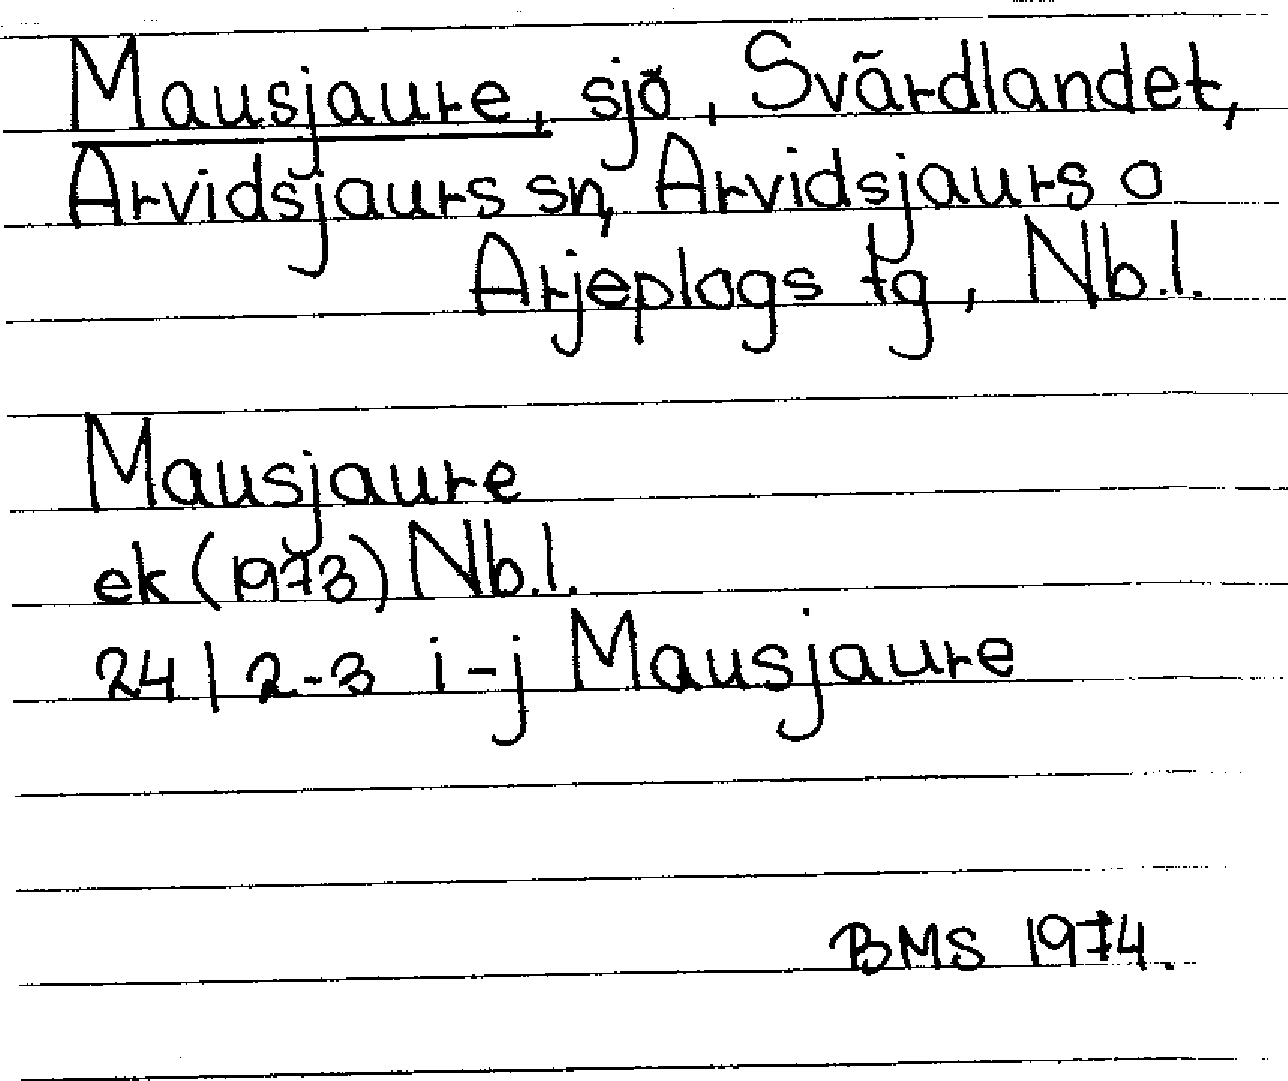 Mausjaure, sjö, Svärdlandet,
Arvidsjaurs sn, Arvidsjaurs o
Arjeplogs tg, Nb.l.
Mausjaure
ek (1973) Nb.l.
24 I 2-3 i-j Mausjaure
BMS 1974.